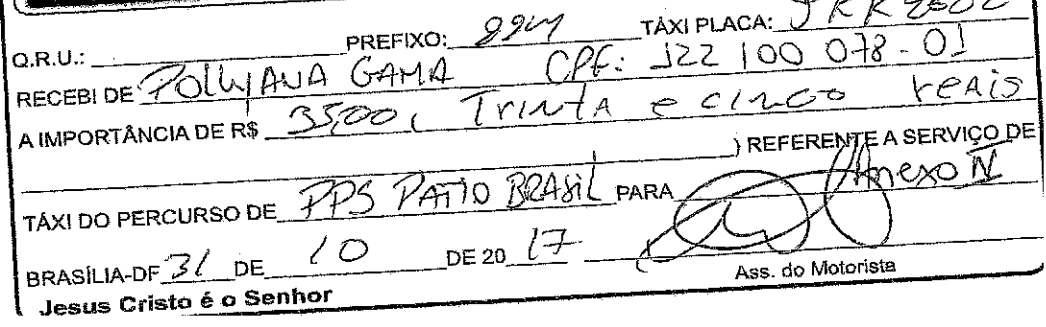 Q.R.U.: PREFIXO: 994 TÁXI PLACA: JKK
RECEBI DE POLLYANA GAMA CPF: 122 100 078-01
A IMPORTÂNCIA DE R$ 35,00 ( Trinta e cinco reais
) REFERENTE A SERVIÇO DE
TÁXI DO PERCURSO DE PPS PATIO BRASIL PARA Anexo IV
BRASÍLIA-DF 31 DE 10 DE 20 17
Ass. do Motorista
Jesus Cristo é o Senhor